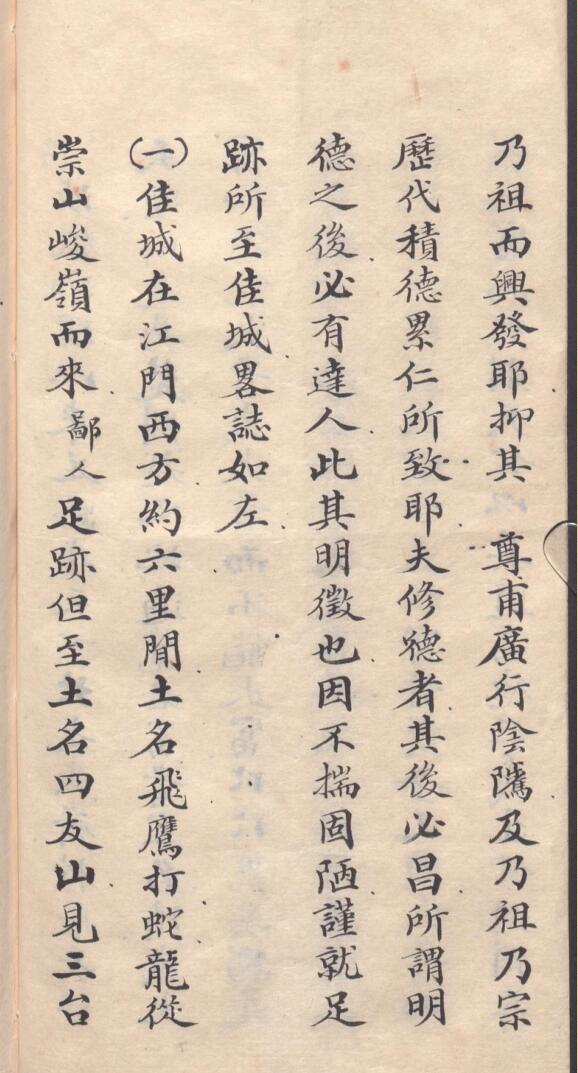 乃祖而興發耶抑其　尊甫廣行陰隲及乃祖乃宗
歷代積德累仁所致耶夫修德者其後必昌所謂明
德之後必有達人此其明徵也因不揣固陋謹就足
跡所至佳城畧誌如左
(一)佳城在江門西方約六里間土名飛鷹打蛇龍從
崇山峻嶺而來鄙人足跡但至土名四友山見三台